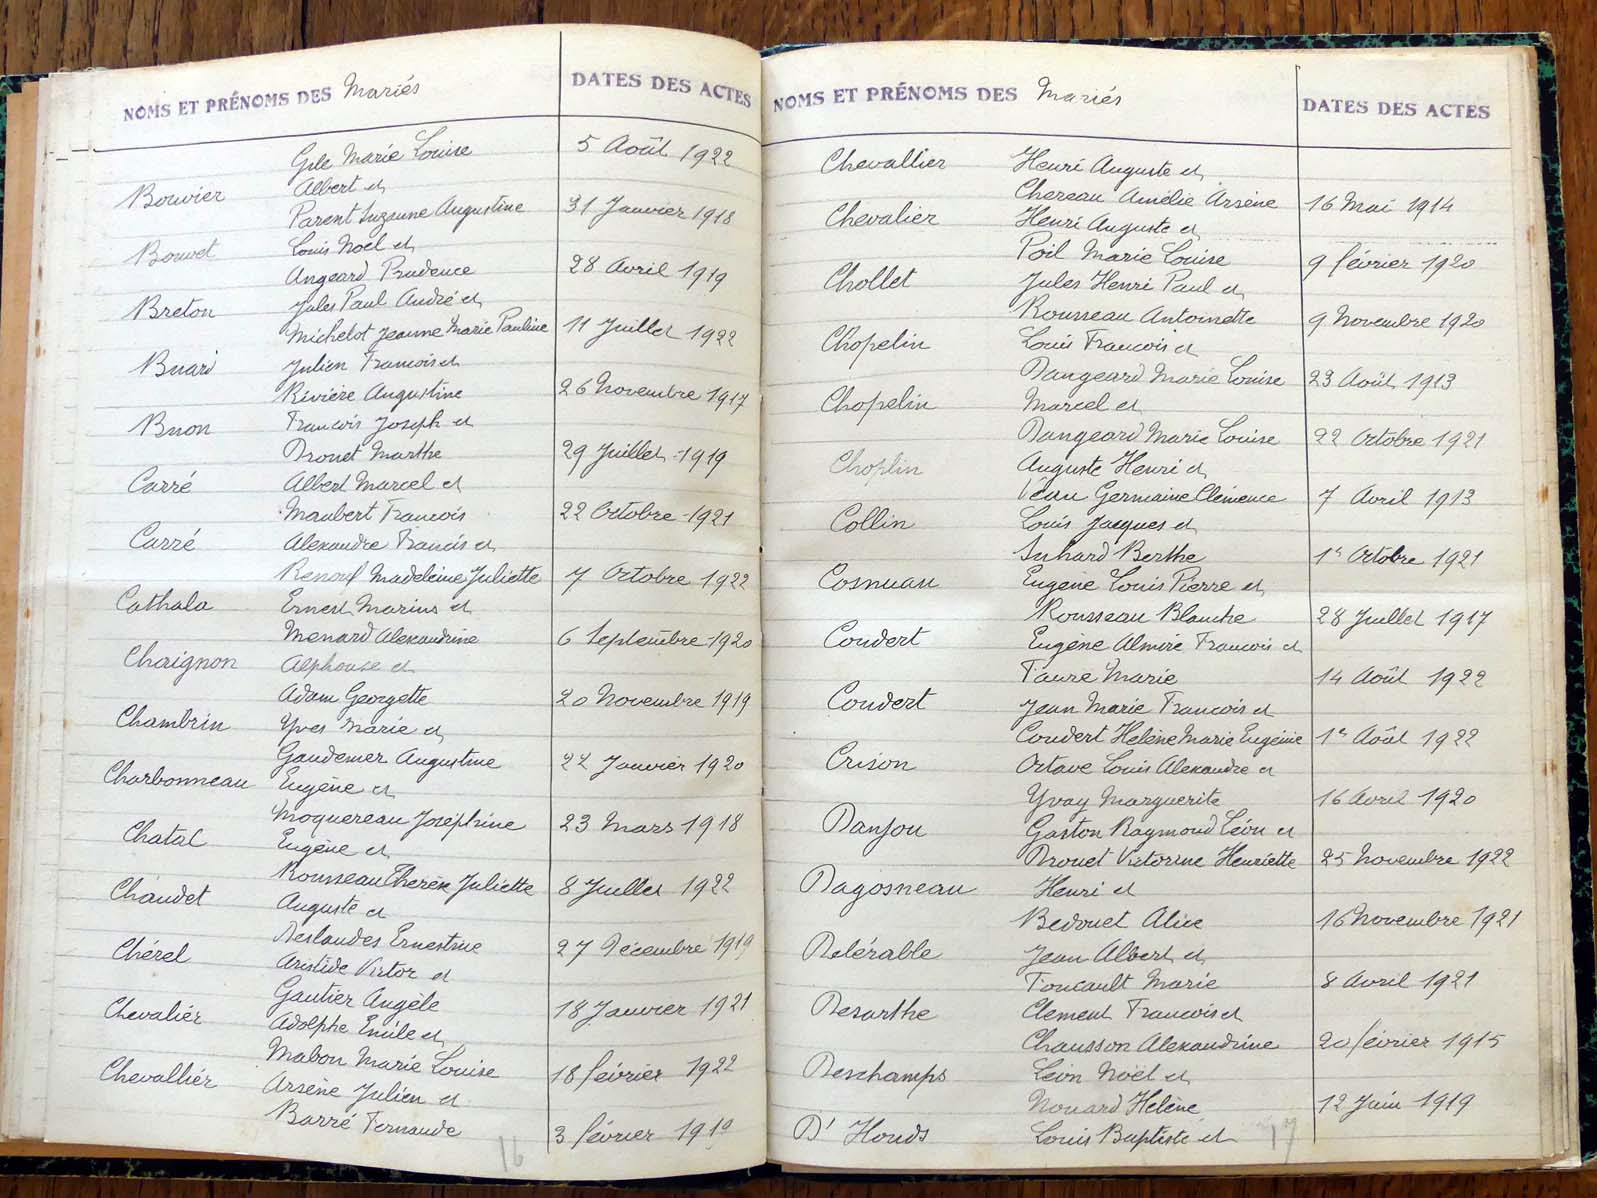 NOMS ET PRÉNOMS DES Mariés DATES DES ACTES
Gile Marie Louise 5 Août 1922
Bouvier Albert et
Parent Suzanne Augustine 31 Janvier 1918
Bouvet Louis Noël et
Angeard Prudence 28 Avril 1919
Breton Jules Paul André et
Michelot Jeanne Marie Pauline 11 Juillet 1922
Buard Julien François et
Rivière Augustine 26 Novembre 1917
Buon François Joseph et
Drouet Marthe 29 Juillet 1919
Carré Albert Marcel et
Maubert François 22 Octobre 1921
Carré Alexandre Francis et
Renouf Madeleine Juliette 7 Octobre 1922
Cathala Ernest Marius et
Menard Alexandrine 6 Septembre 1920
Chaignon Alphonse et
Adam Georgette 20 Novembre 1919
Chambrin Yves Marie et
Gaudemer Augustine 22 Janvier 1920
Charbonneau Eugène et
Moquereau Joséphine 23 Mars 1918
Chatal Eugène et
Rousseau Thérèse Juliette 8 Juillet 1922
Chaudet Auguste et
Deslandes Ernestine 27 Décembre 1919
Chérel Aristide Victor et
Gautier Angèle 18 Janvier 1921
Chevalier Adolphe Emile et
Mabon Marie Louise 18 février 1922
Chevallier Arsène Julien et
Barré Fernande 3 février
16
NOMS ET PRÉNOMS DES Mariés DATES DES ACTES
Chevallier Henri Auguste et
Chereau Amélie Arsène 16 Mai 1914
Chevalier Henri Auguste et
Poil Marie Louise 9 février 1920
Chollet Jules Henri Paul et
Rousseau Antoinette 9 Novembre 1920
Chopelin Louis François et
Dangeard Marie Louise 23 Août 1913
Chopelin Marcel et
Dangeard Marie Louise 22 Octobre 1921
Choplin Auguste Henri et
Véau Germaine Clémence 7 Avril 1913
Collin Louis Jacques et
Suhard Berthe 1er Octobre 1921
Cosnuau Eugène Louis Pierre et
Rousseau Blanche 28 Juillet 1917
Coudert Eugène Almire François et
Faure Marie 14 Août 1922
Coudert Jean Marie François et
Coudert Helène Marie Eugénie 1er Août 1922
Crison Octave Louis Alexandre et
Yvay Marguerite 16 Avril 1920
Danjou Gaston Raymond Léon et
Drouet Victorine Henriette 25 Novembre 1922
Dagosneau Henri et
Bedouet Alice 16 Novembre 1921
Delérable Jean Albert et
Foucault Marie 8 Avril 1921
Desarthe Clement François et
Chausson Alexandrine 20 février 1915
Deschamps Léon Noël et
Nouard Helène 12 Juin 1919
D' Houds Louis Baptiste et
17